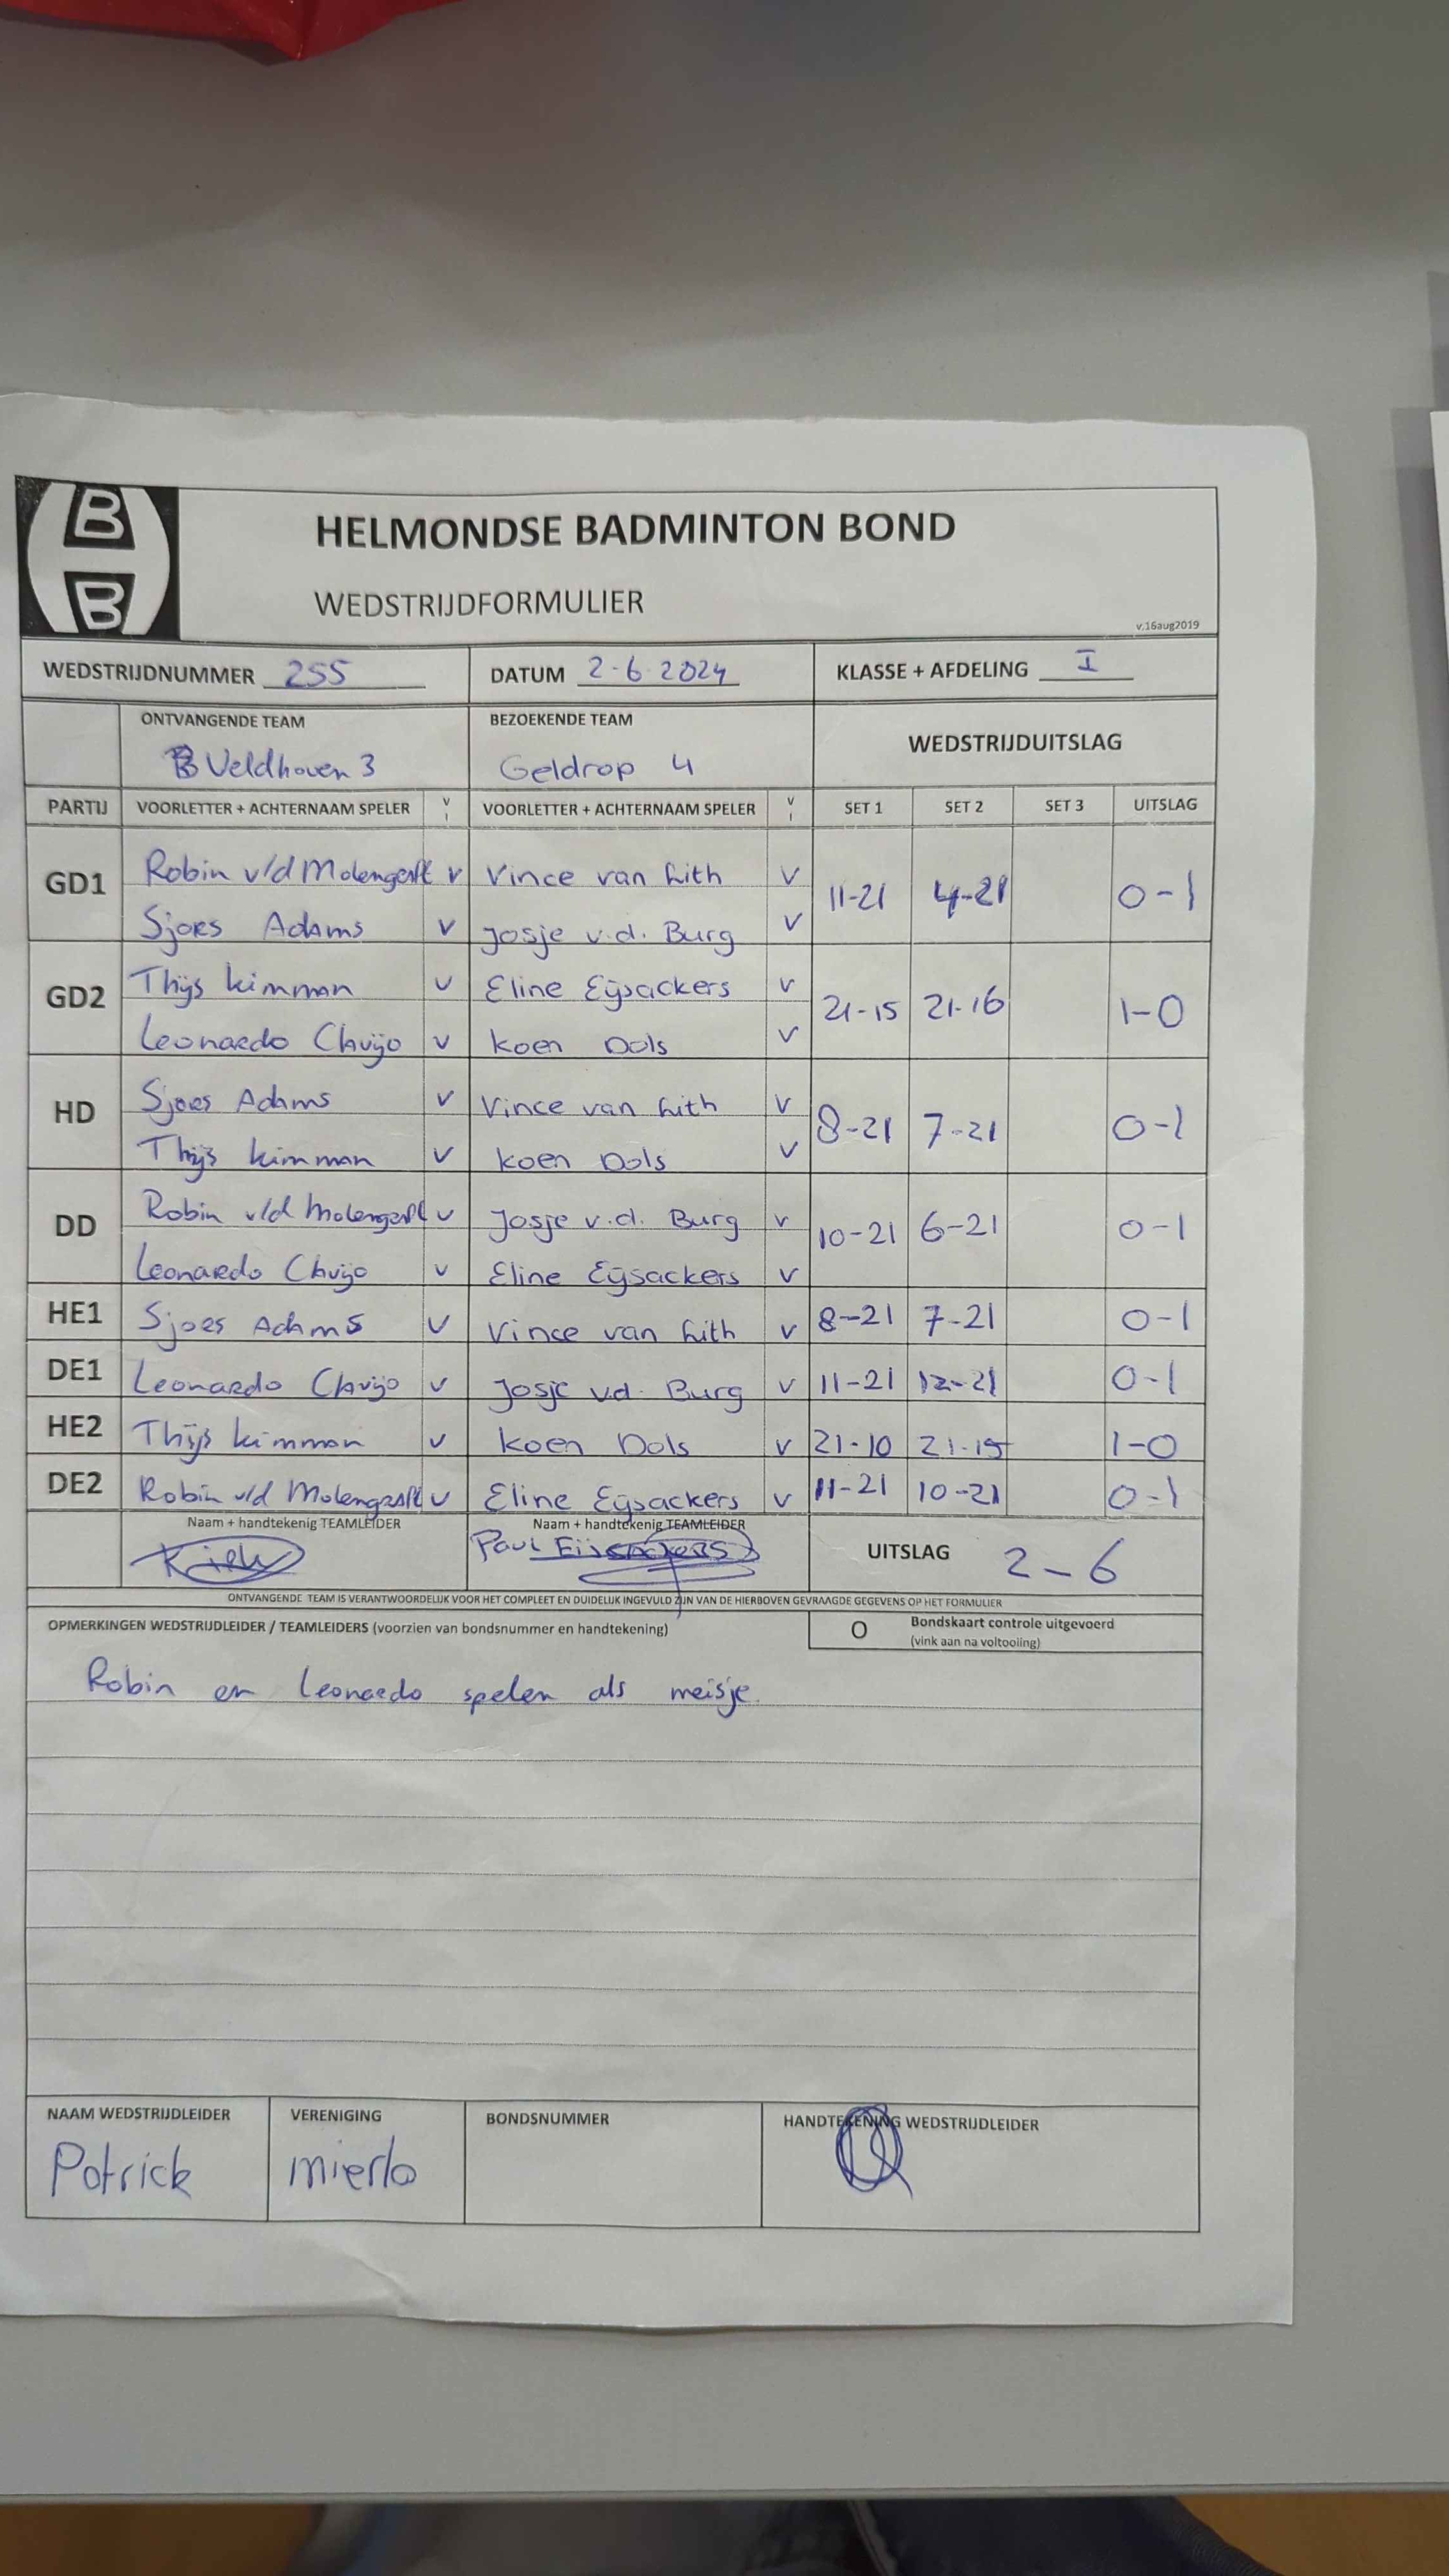 B
B
HELMONDSE BADMINTON BOND
WEDSTRIJDFORMULIER
v.16aug2019
WEDSTRIJDNUMMER 255 DATUM 2-6 2024 KLASSE + AFDELING I
ONTVANGENDE TEAM BEZOEKENDE TEAM WEDSTRIJDUITSLAG
Veldhoven 3 Geldrop 4
PARTIJ VOORLETTER + ACHTERNAAM SPELER V VOORLETTER + ACHTERNAAM SPELER V SET 1 SET 2 SET 3 UITSLAG
GD1 Robin v/d Molengraft v Vince van Lith v 11-21 4-21 0-1
Sjors Adams v Josje v.d. Burg v
GD2 Thijs Kimman v Eline Eijsackers v 21-15 21-16 1-0
Leonardo Chuijo v Koen Dols v
HD Sjors Adams v Vince van Lith v 8-21 7-21 0-1
Thijs Kimman v Koen Dols v
DD Robin v/d Molengraft v Josje v.d. Burg v 10-21 6-21 0-1
Leonardo Chuijo v Eline Eijsackers v
HE1 Sjors Adams v Vince van Lith v 8-21 7-21 0-1
DE1 Leonardo Chuijo v Josje v.d. Burg v 11-21 12-21 0-1
HE2 Thijs Kimman v Koen Dols v 21-10 21-15 1-0
DE2 Robin v/d Molengraft v Eline Eijsackers v 11-21 10-21 0-1
Naam + handtekenig TEAMLEIDER Naam + handtekenig TEAMLEIDER
Paul Eijsackers UITSLAG 2-6
ONTVANGENDE TEAM IS VERANTWOORDELIJK VOOR HET COMPLEET EN DUIDELIJK INGEVULD ZIJN VAN DE HIERBOVEN GEVRAAGDE GEGEVENS OP HET FORMULIER
OPMERKINGEN WEDSTRIJDLEIDER / TEAMLEIDERS (voorzien van bondsnummer en handtekening) O Bondskaart controle uitgevoerd
(vink aan na voltooiing)
Robin en Leonardo spelen als meisje.
NAAM WEDSTRIJDLEIDER VERENIGING BONDSNUMMER HANDTEKENING WEDSTRIJDLEIDER
Patrick mierlo